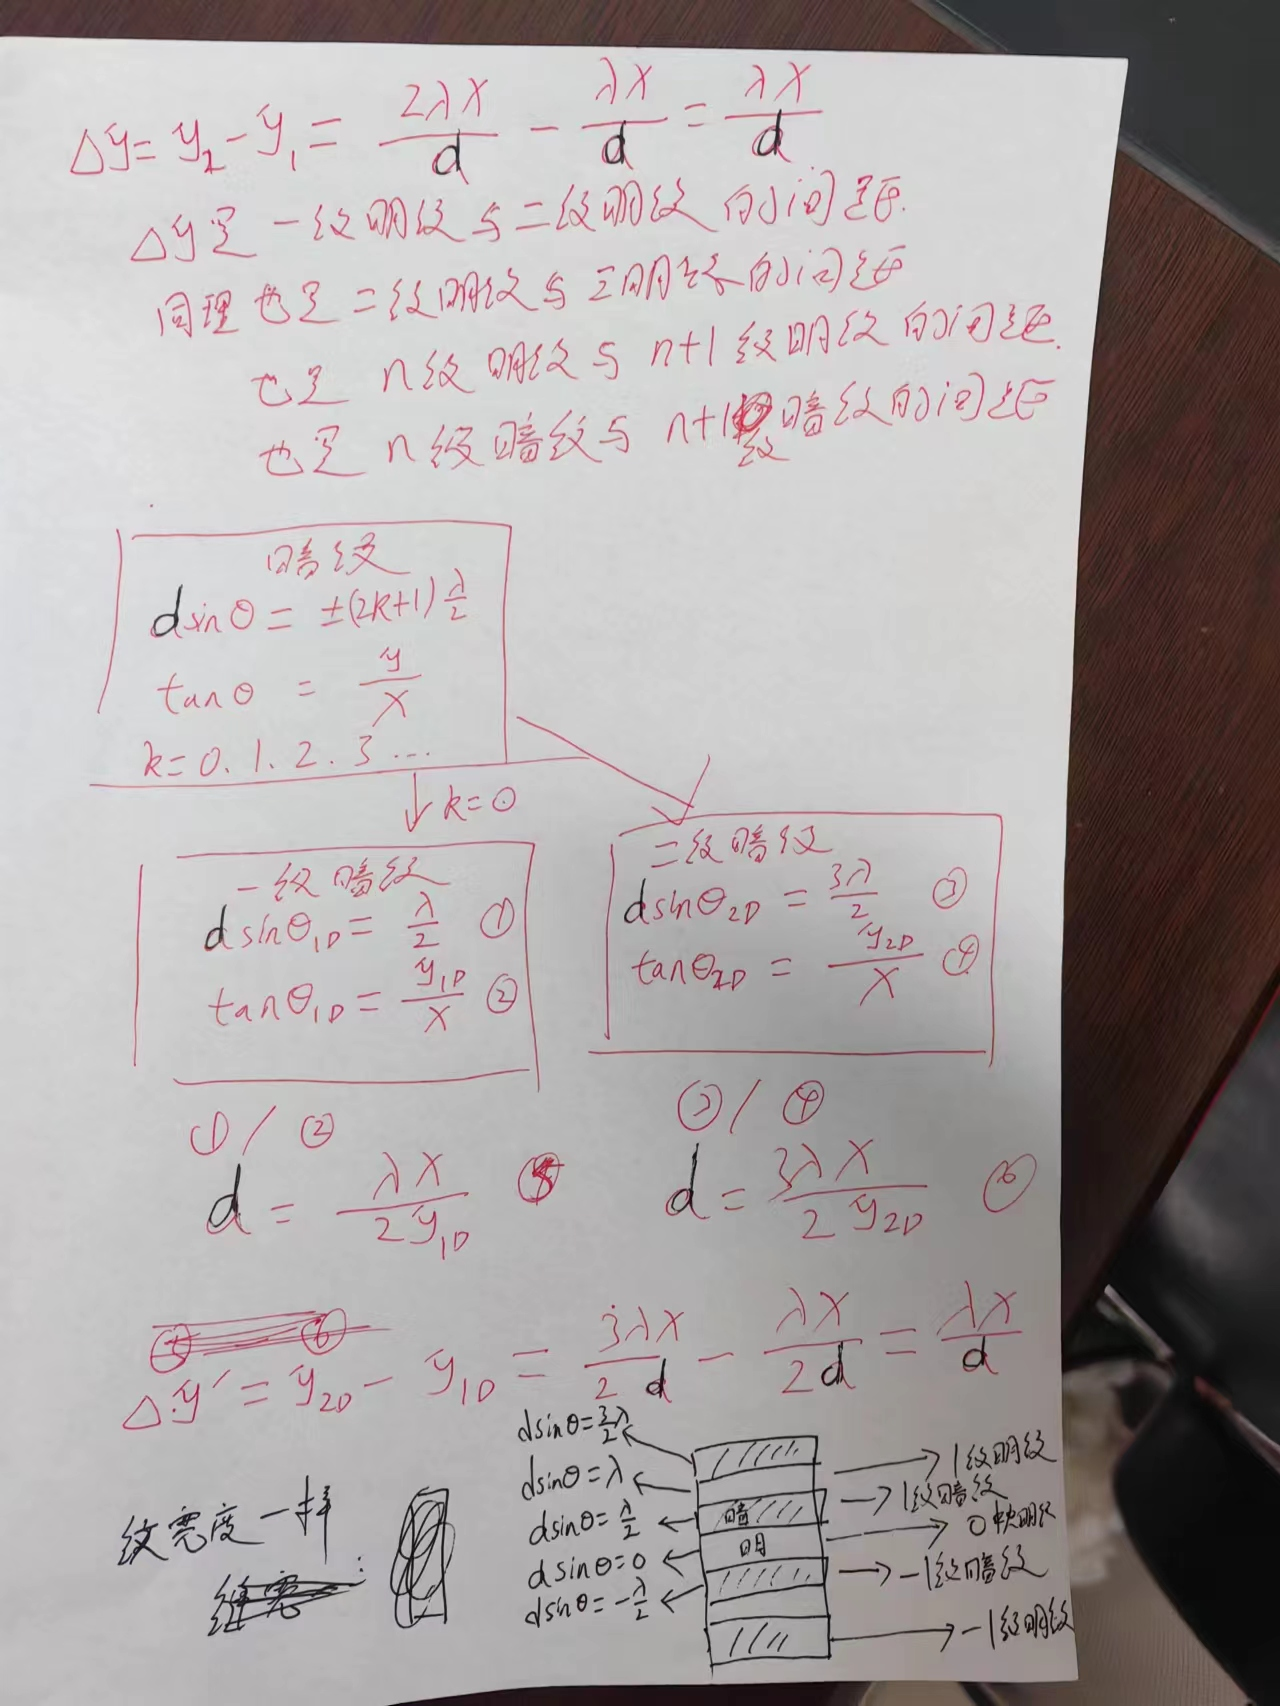 Δy = y₂ - y₁ = 2λX/d - λX/d = λX/d
Δy是一级明纹与二级明纹的间距.
同理也是二级明纹与三明纹的间距
也是 n级明纹与 n+1级明纹的间距.
也是 n级暗纹与 n+1级暗纹的间距
暗纹
dsinθ = ±(2k+1)λ/2
tanθ = y/X
k=0.1.2.3...
k=0
一级暗纹
dsinθ₁D = λ/2 ①
tanθ₁D = y₁D/X ②
二级暗纹
dsinθ₂D = 3λ/2 ③
tanθ₂D = y₂D/X ④
①/②
③/④
d = λX/2y₁D ⑤
d = 3λX/2y₂D ⑥
Δy′ = y₂D - y₁D = 3λX/2d - λX/2d = λX/d
纹宽度一样
dsinθ=3λ/2
dsinθ=λ
dsinθ=λ/2
dsinθ=0
dsinθ=-λ/2
暗
明
1级明纹
1级暗纹
0 明纹
-1级暗纹
-1级明纹